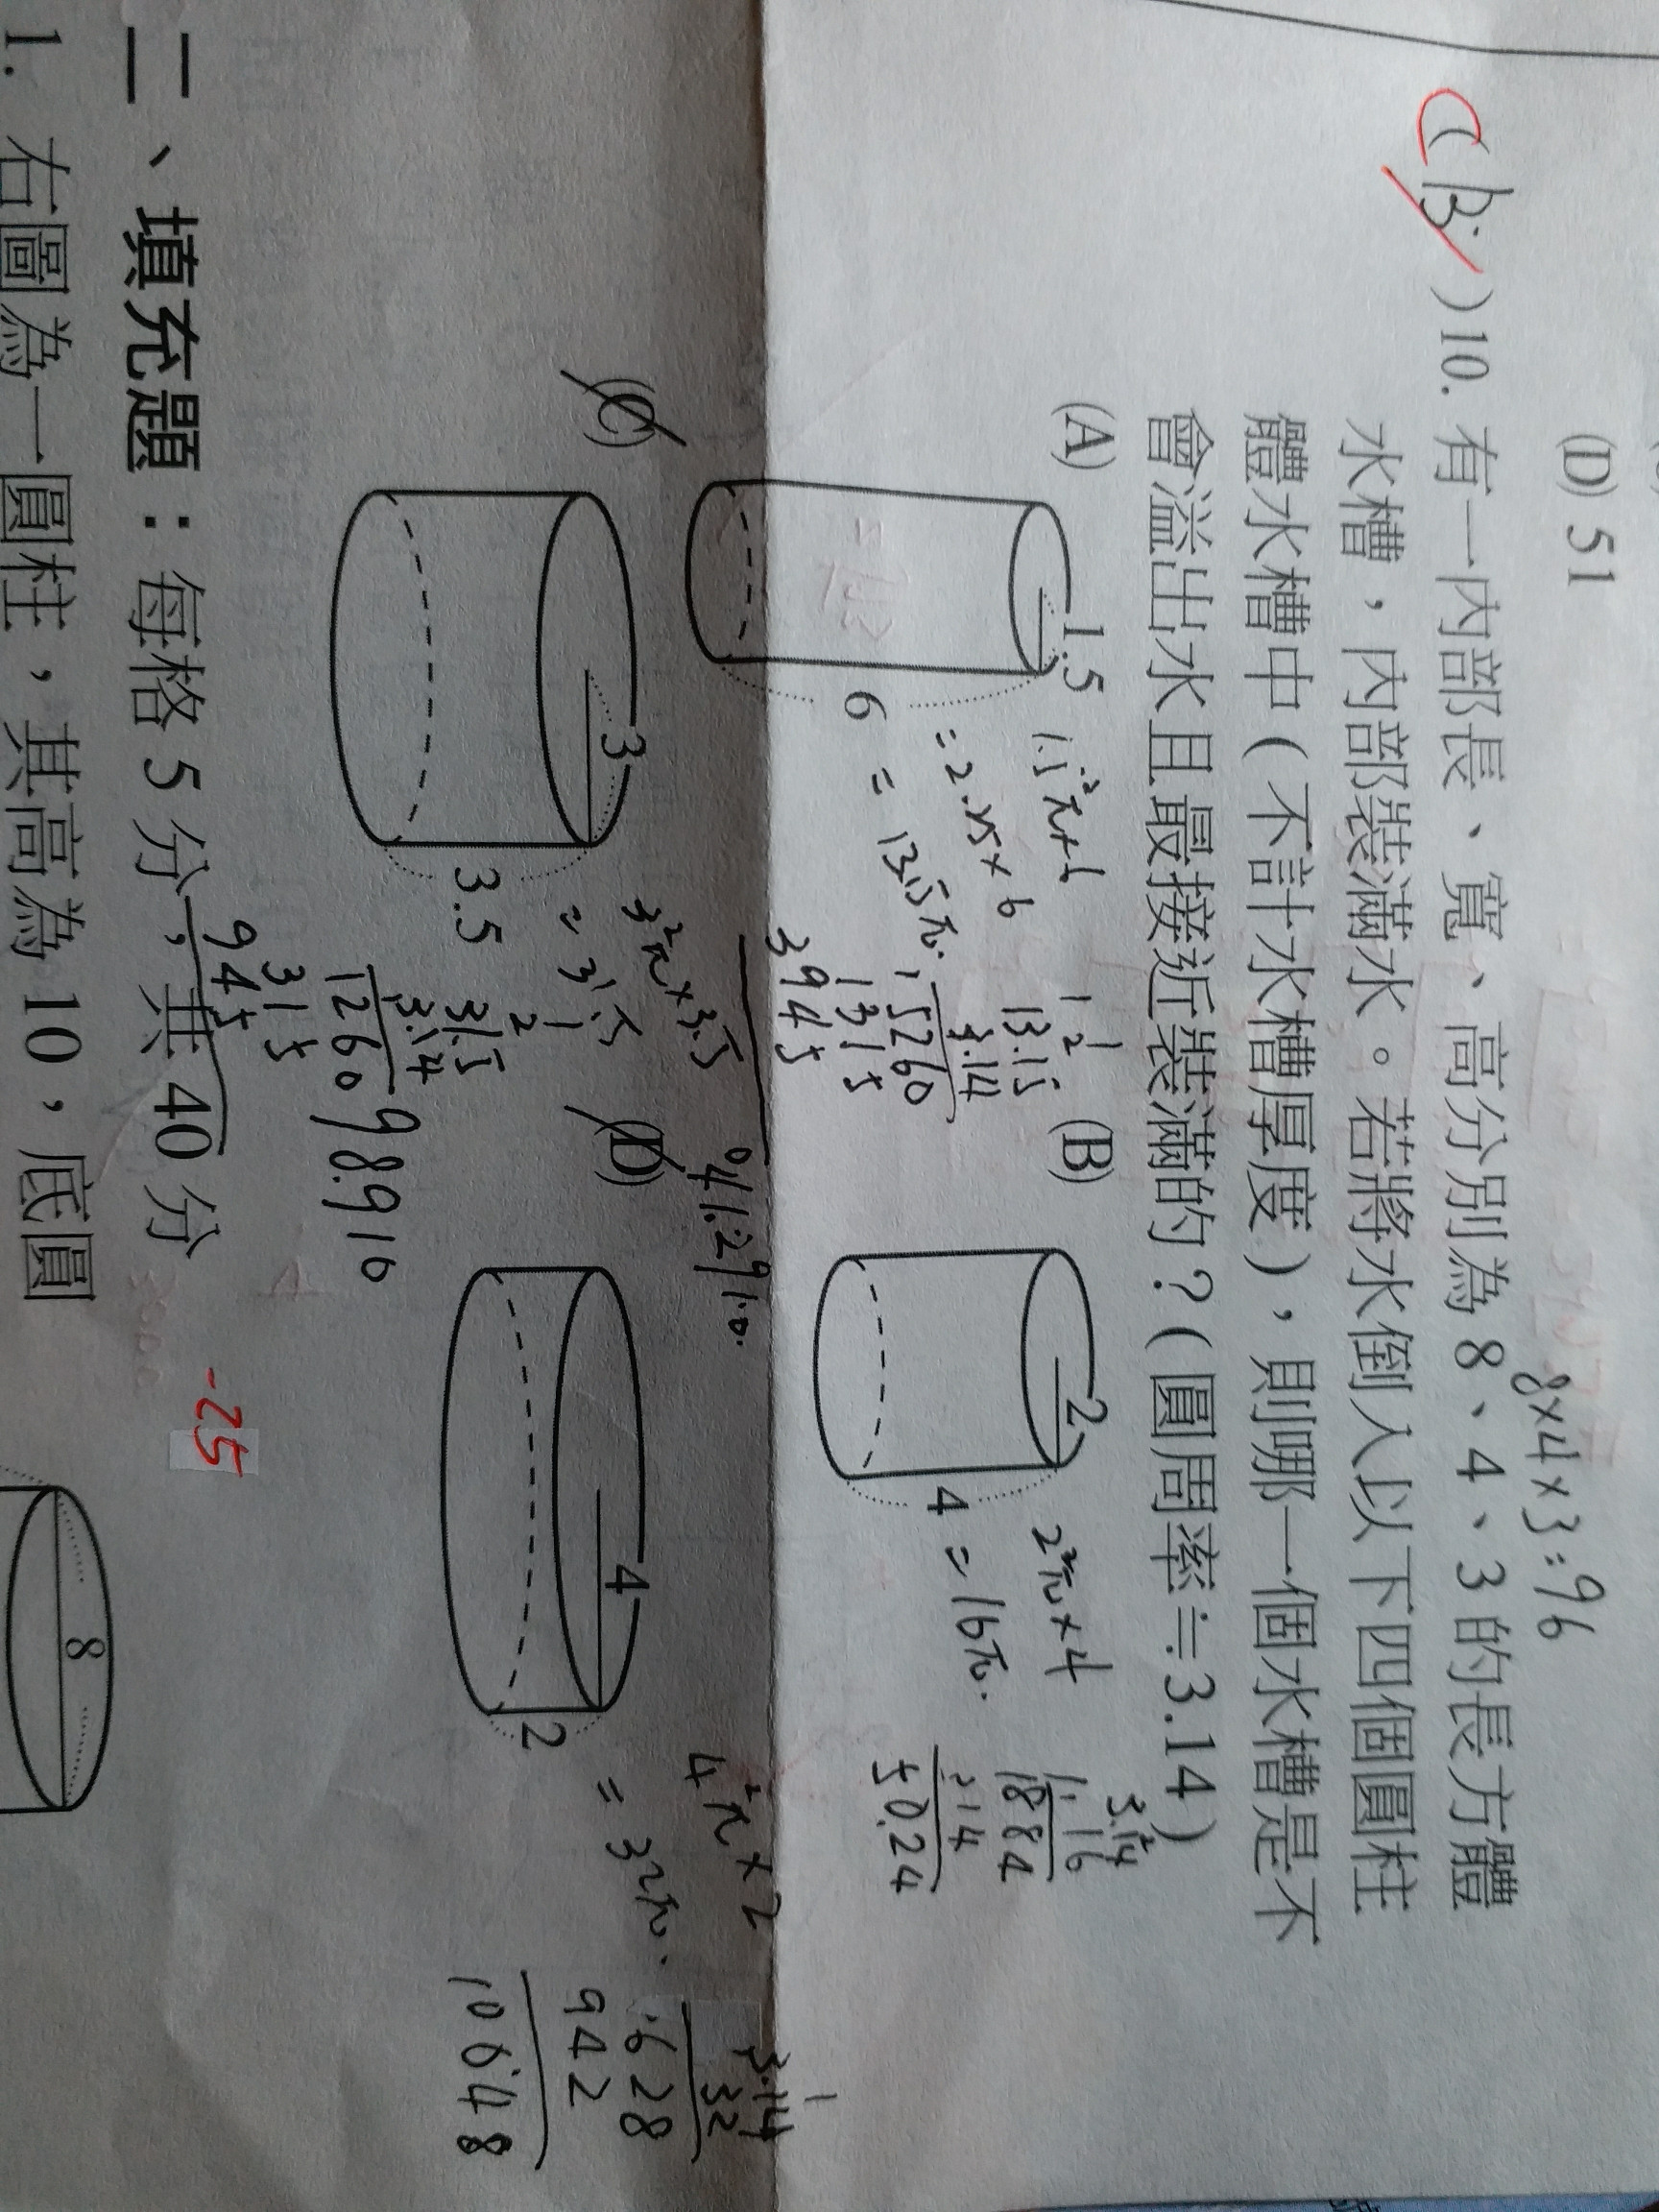 (D) 51
8×4×3=96
C (B) 10. 有一內部長、寬、高分別為 8、4、3 的長方體
水槽，內部裝滿水。若將水倒入以下四個圓柱
體水槽中（不計水槽厚度），則哪一個水槽是不
會溢出水且最接近裝滿的？（圓周率≒3.14）
(A)
1.5
6
=2.25×6
=13.5π.
3.14
1260
(B)
2
4
2²π×4
=16π.
3.14
16
1884
314
50.24
(C)
3
3.5
3²π×3.5
=31.5
31.5
3.14
1260
315
945
98.910
(D)
4
2
4²π×2
=32π.
3.14
32
628
942
10048
-25
二、填充題：每格 5 分，共 40 分
1. 右圖為一圓柱，其高為 10，底圓
8